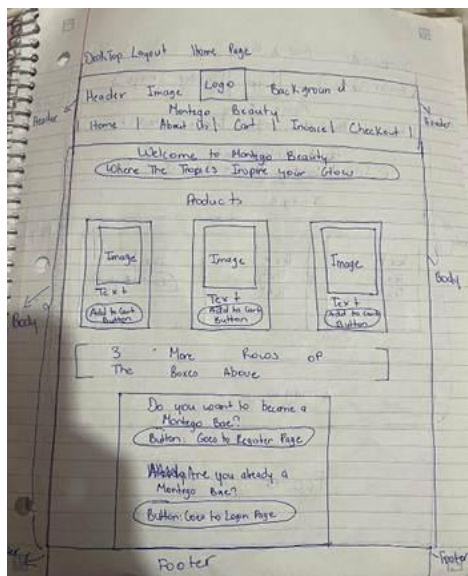 DeskTop Layout Home Page
Header Image Logo Background
Montego Beauty
Header
Header
| Home | About Us | Cart | Invoice | Checkout |
Welcome to Montego Beauty
Where The Tropics Inspire your Glow
Products
Image Image Image
Text Text Text
Add to Cart Button Add to Cart Button Add to Cart Button
Body
Body
3 More Rows of
The Boxes Above
Do you want to become a
Montego Bae?
Button: Goes to Register Page
Are you already a
Montego Bae?
Button: Goes to Login Page
Footer
Footer